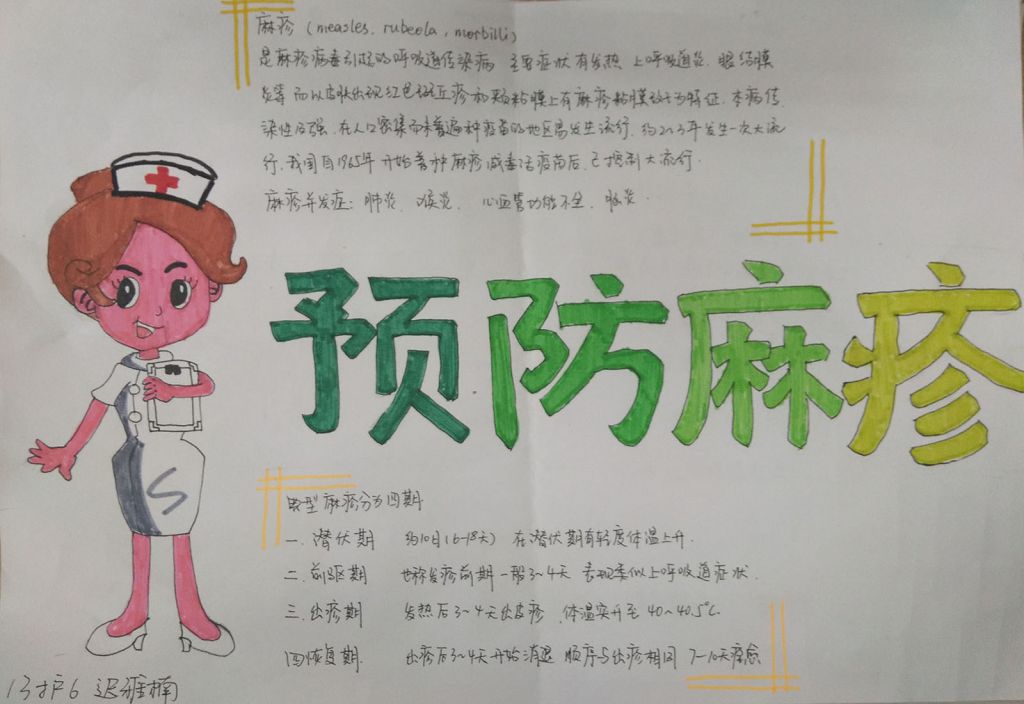 麻疹 (measles, rubeola, morbilli)
是麻疹病毒引起的呼吸道传染病 主要症状有发热 上呼吸道炎 眼结膜
炎等 而以皮肤出现红色斑丘疹和颊粘膜上有麻疹粘膜斑为特征. 本病传
染性极强. 在人口密集而未普遍种疫苗的地区易发生流行. 约2~3年发生一次大流
行. 我国自1965年 开始普种麻疹减毒活疫苗后. 已控制大流行.
麻疹并发症: 肺炎. 喉炎. 心血管功能不全. 脑炎.
预防麻疹
典型麻疹分为四期
一. 潜伏期 约10日(6~18天) 在潜伏期有轻度体温上升.
二. 前驱期 也称发疹前期 一般3~4天 表现类似上呼吸道症状.
三. 出疹期 发热后3~4天出皮疹 体温突升至40~40.5℃
四恢复期. 出疹后3~4天开始消退 顺序与出疹相同 7~10天痊愈
13护6 迟雅楠